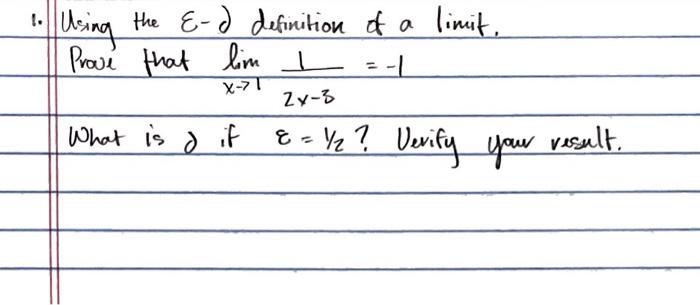 1. Using the ε-∂ definition of a limit.
Prove that lim x->1 1/(2x-3) = -1
What is ∂ if ε = 1/2? Verify your result.